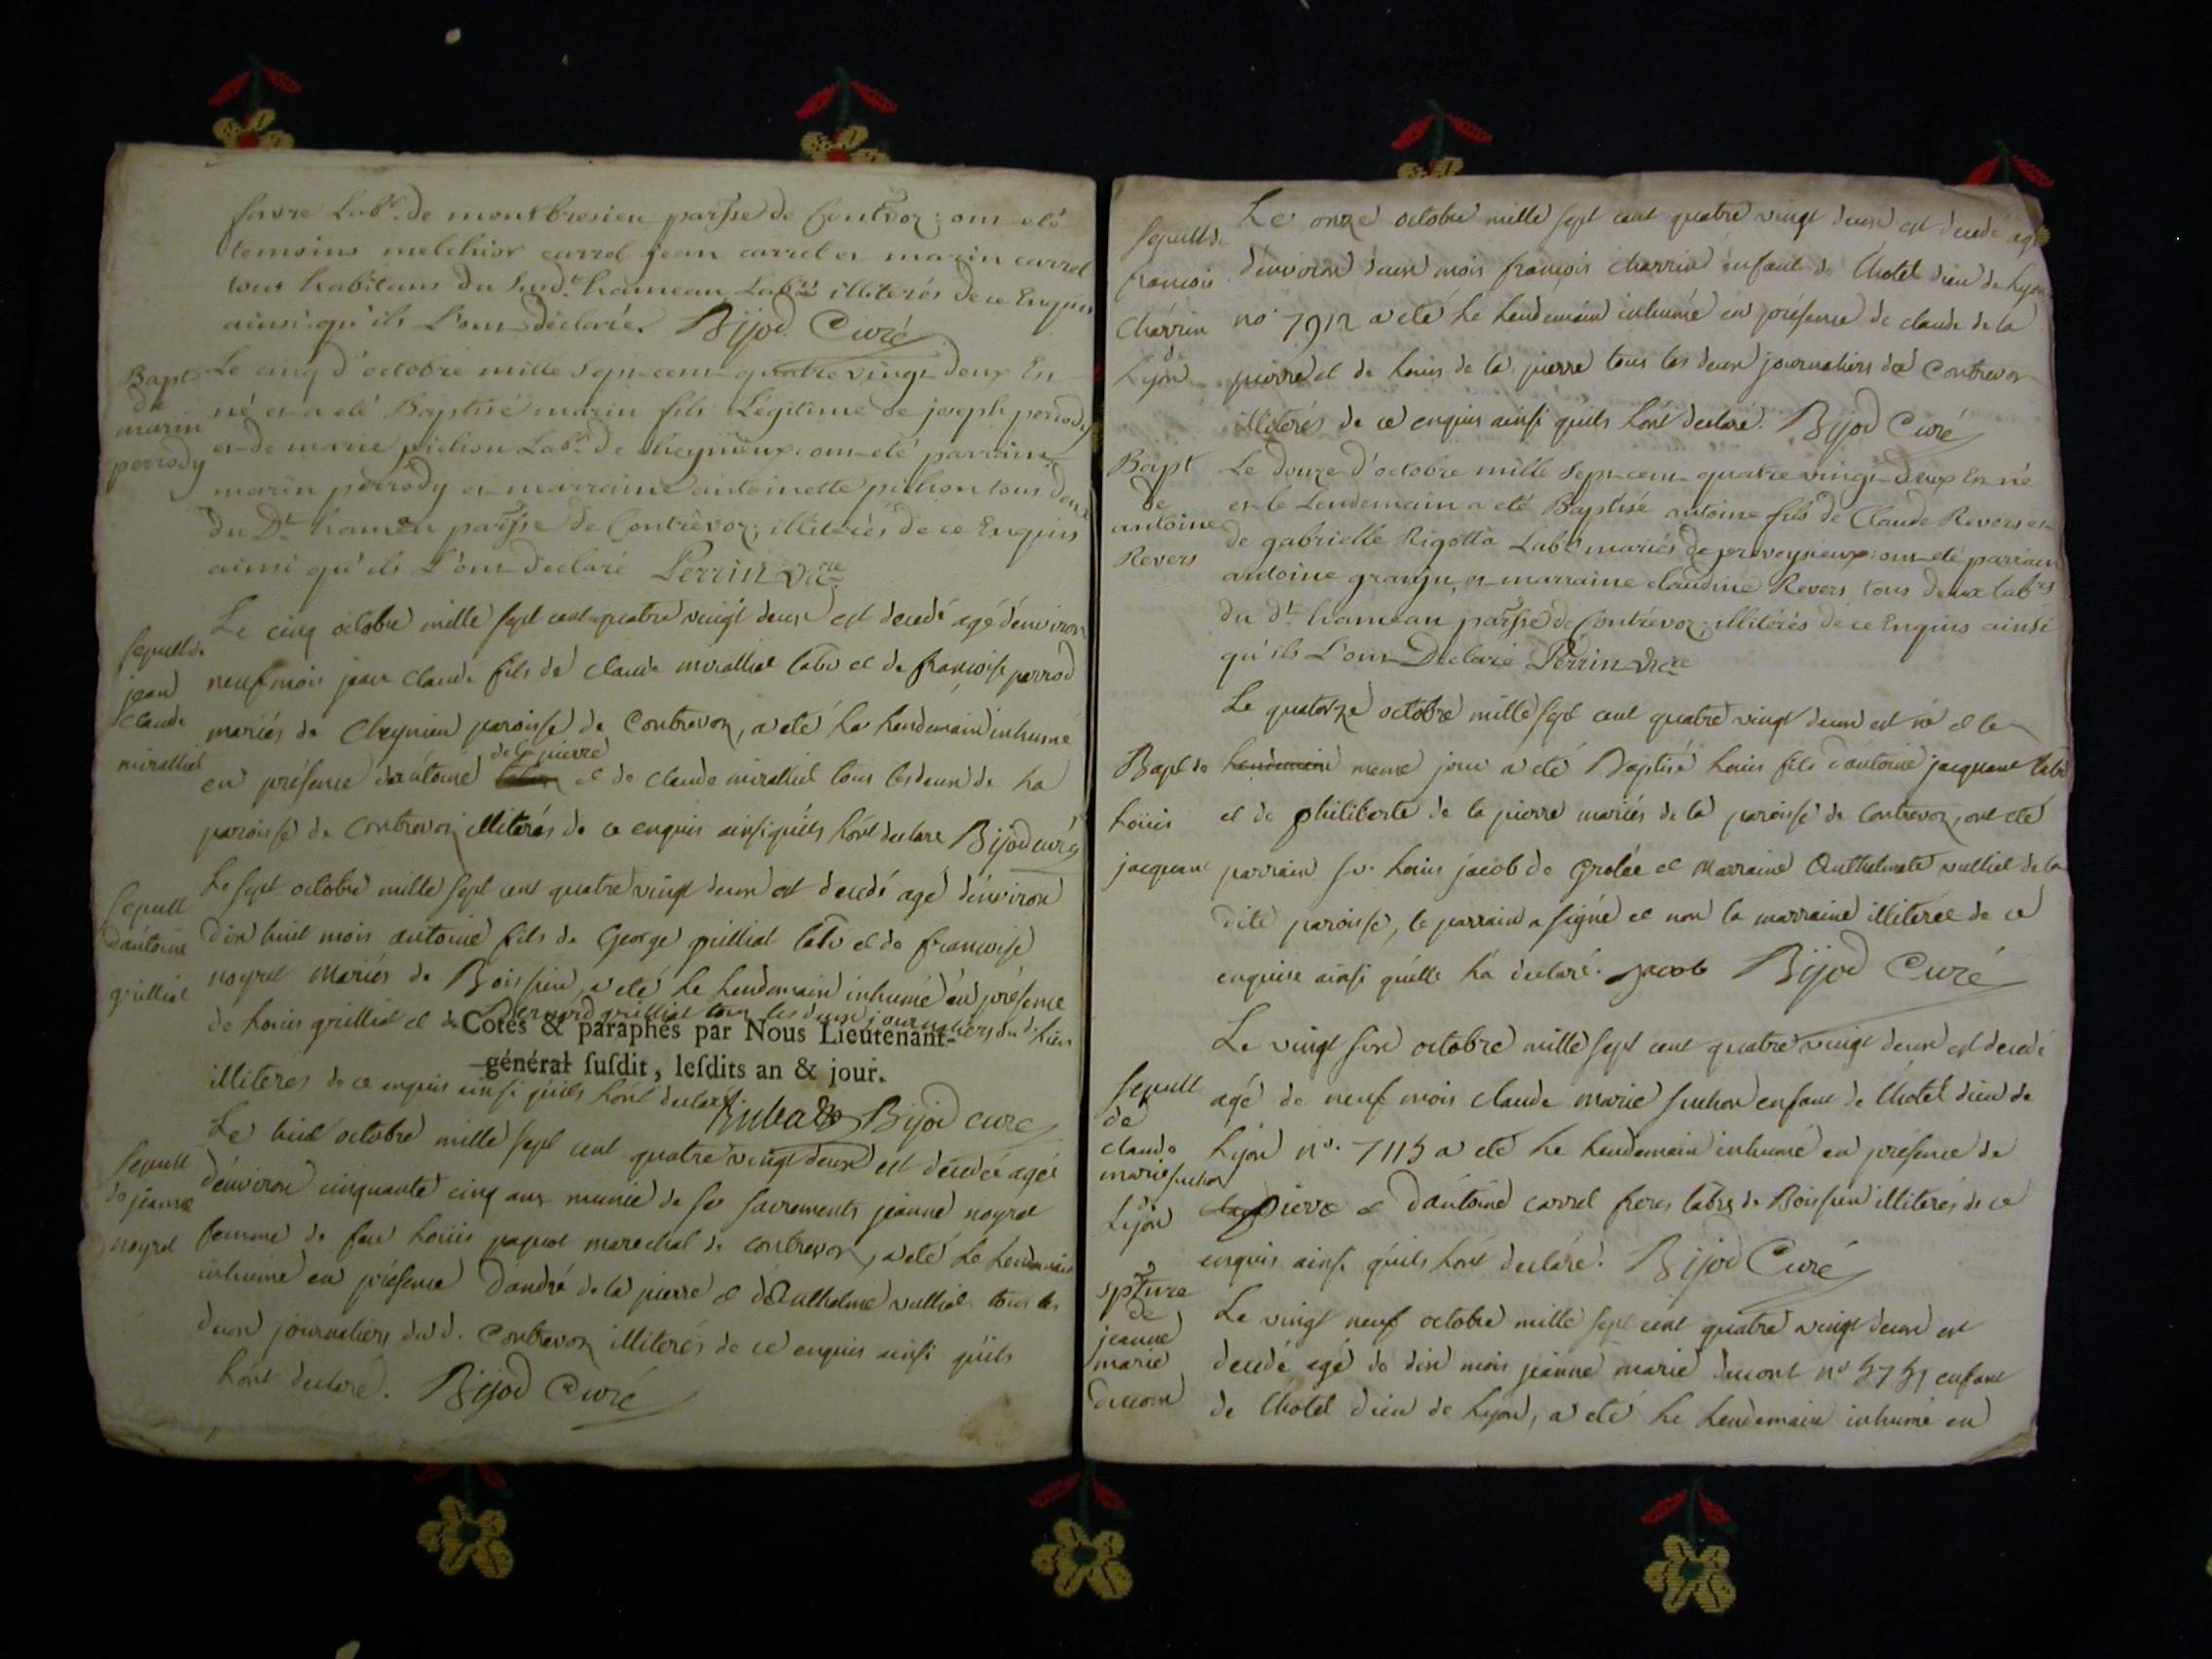 favre Labr. de montbresieu parsse de Contrevoz; ont eté
temoins melchior carrel jean carrel et marin carrel
tous habitans du susdt. hameau Labrs illiterés de ce Enquis
ainsi qu'ils L'ont déclaré. Bijod Curé
Bapt
de
marin
perrody
Le cinq d'octobre mille Sept-cent-quatre vingt-deux Est
né et a eté Baptisé marin fils Légitime de joseph perrody
et de marie pichon Labrs. De Cheynieux. ont eté parrain
marin perrody et marraine antoinette pichon tous deux
du Dt. hameau parsse de Contrevoz, illiterés de ce Enquis
ainsi qu'ils L'ont Declaré Perrin Vicre
sepult de
jean
claude
miralliel
Le cinq octobre mille sept cent quatre vingt deux est decedé agé d'environ
neuf mois jean claude fils de claude miralliel labr et de francoise perrod
mariés de Cheynieu paroisse de Contrevoz, a eté le Lendemain inhumé
en présence d'antoine de la pierre et de claude miralliel tous les deux de La
paroisse de Contrevoz illiterés de ce enquis ainsi qu'ils L'ont declaré Bijod curé
sepult
d'antoine
grilliat
Le sept octobre mille sept cent quatre vingt deux est decedé agé d'environ
dix huit mois antoine fils de George grilliat labr et de francoise
noyret Mariés de Boissieu, a eté Le Lendemain inhumé en présence
de Louis grilliat et de Bernard grilliat tous les deux journaliers du d. Lieu
Cotés & paraphés par Nous Lieutenant-
général susdit, lesdits an & jour.
illiteres de ce enquis ainsi qu'ils L'ont declaré
Bijod curé
sepult
de jeanne
noyret
Le huit octobre mille sept cent quatre vingt deux est decedée agée
d'environ cinquante cinq ans munie de se sacrements jeanne noyret
femme de feu Loüis paquet marechal de Contrevoz, a eté Le Lendemain
inhumé en présence d'andré de la pierre et d'Anthelme vulliel tous les
deux journaliers du d. Contrevoz illiterés de ce enquis ainsi qu'ils
L'ont declaré. Bijod Curé
sepult de
francois
charrin
de
Lyon
Le onze octobre mille sept cent quatre vingt deux est decedé agé
d'environ deux mois françois charrin enfant de L'hotel dieu de Lyon
no. 7912 a eté Le Lendemain inhumé en présence de claude de la
pierre et de Louis de la pierre tous les deux journaliers de Contrevoz
illiterés de ce enquis ainsi qu'ils L'ont declaré. Bijod Curé
Bapt
de
antoine
Revers
Le Douze d'octobre mille Sept-cent quatre vingt-deux Est né
et le Lendemain a eté Baptisé antoine fils de Claude Revers et
de gabrielle Rigotta Labrs mariés de preveysieux: ont eté parrain
antoine granju, et marraine claudine Revers tous deux labrs
du dt. hameau parsse de Contrevoz, illiterés de ce Enquis ainsi
qu'ils L'ont Declaré Perrin Vicre
Bapt de
Loüis
jacquant
Le quatorze octobre mille sept cent quatre vingt deux est né et le
lendemain meme jour a eté Baptisé Louis fils d'antoine jacquant labr
et de philiberte de la pierre mariés de la paroisse de Contrevoz, ont eté
parrain sr. Louis jacob de Grolée et Marraine Anthelmete vulliel de la
dite paroisse, le parrain a signé et non la marraine illiterée de ce
enquise ainsi qu'elle L'a declaré. jacob Bijod Curé
sepult
de
claude
marie suchon
de
Lyon
Le vingt six octobre mille sept cent quatre vingt deux est decedé
agé de neuf mois claude marie suchon enfant de L'hotel dieu de
Lyon no. 7115 a eté Le Lendemain inhumé en présence de
pierre et d'antoine carrel freres labrs de Boissieu illiterés de ce
enquis ainsi qu'ils L'ont declaré. Bijod Curé
spture
de
jeanne
marie
ducont
Le vingt neuf octobre mille sept cent quatre vingt deux est
decedé agé de dix mois jeanne marie ducont no 5751 enfant
de L'hotel dieu de Lyon, a eté Le Lendemain inhumé en